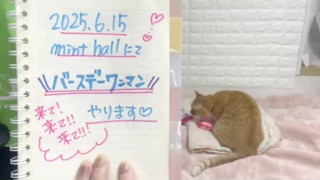 2025.6.15
mint hallにて
バースデーワンマン
やります♡
来て!
来て!!
来て!!!